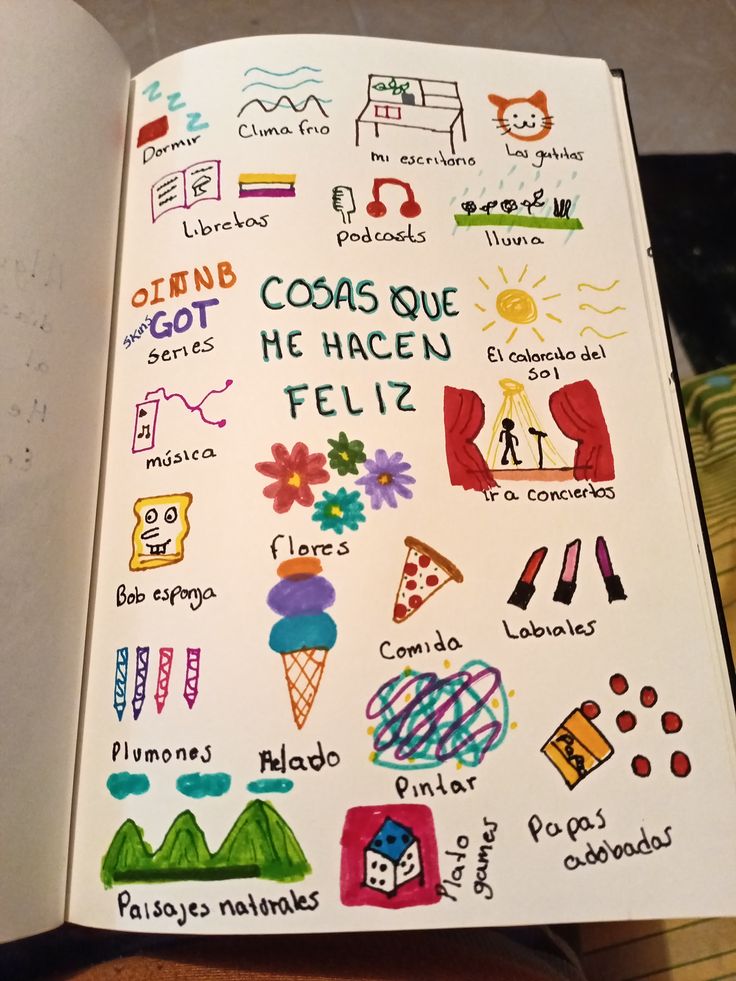 Dormir
Clima frio
mi escritorio
Los gatitos
Libretas
podcasts
lluvia
OITNB
Skins GOT
series
COSAS QUE
ME HACEN
FELIZ
El calorcito del
sol
música
Ir a conciertos
flores
Bob esponja
Comida
Labiales
Plumones
Helado
Pintar
Papas
adobadas
Paisajes naturales
Plato
games